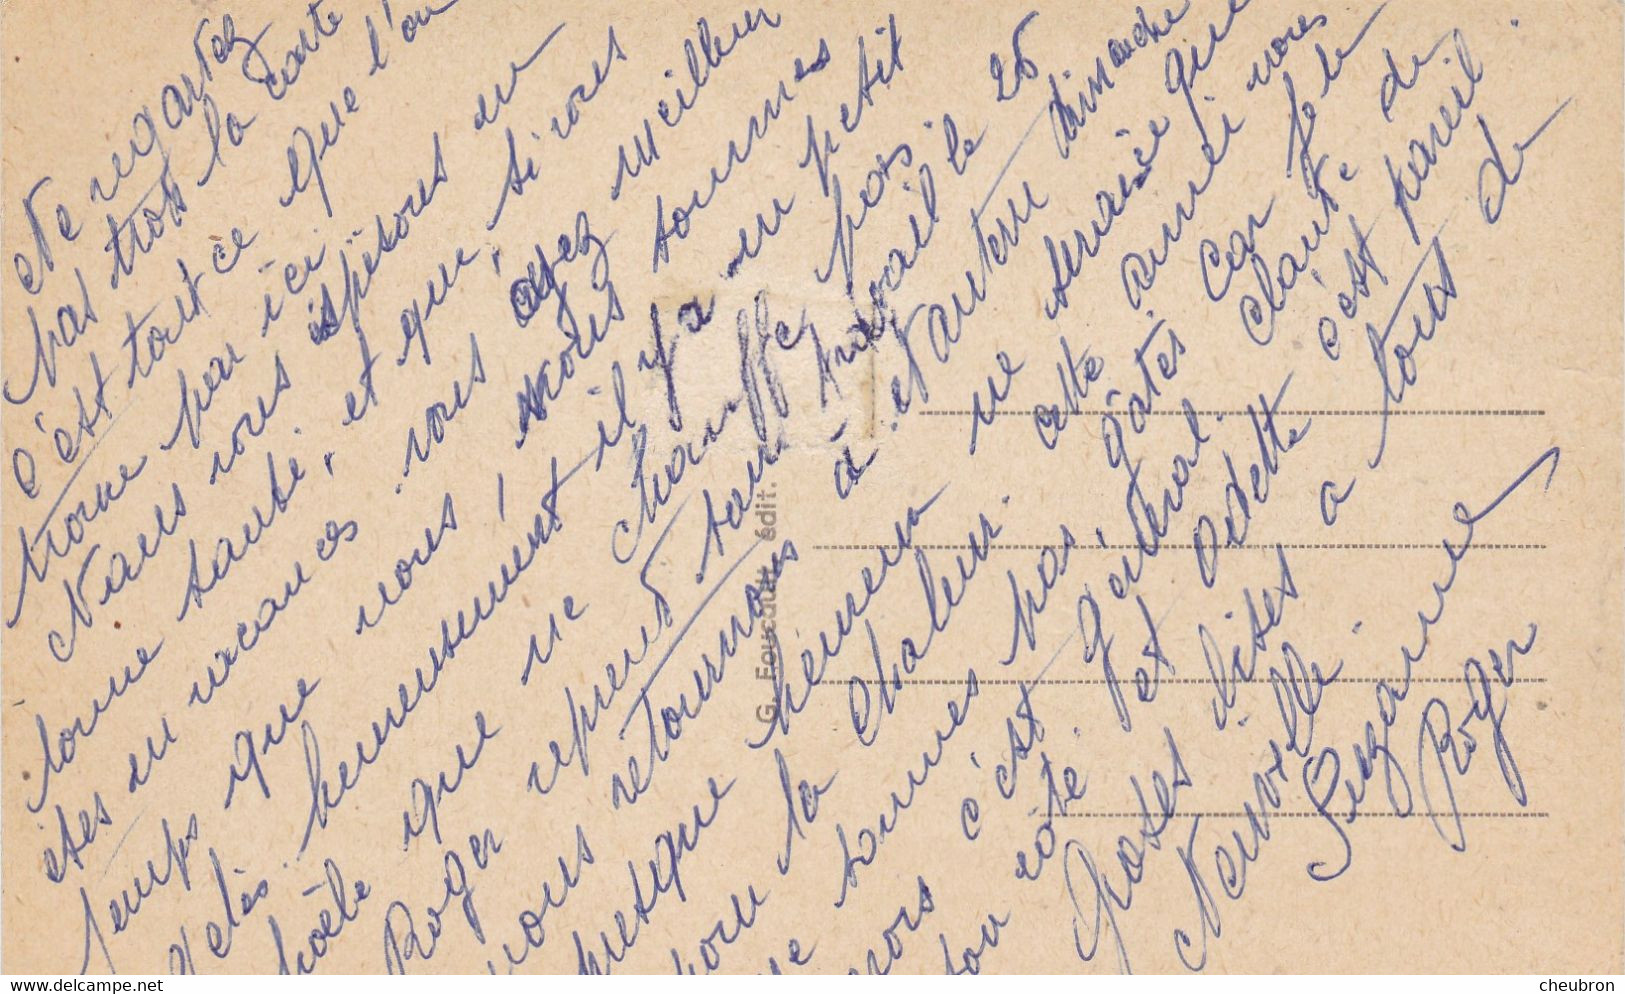 Ne regardez
pas trop la carte
c'est tout ce que l'on
trouve par ici.
Nous vous espérons en
bonne santé, et que, si vous
êtes en vacances vous ayez meilleur
temps que nous, nous sommes
gelés. heureusement il y a un petit
poêle que ne chauffe pas.
Roger reprend son travail le 25
nous retournons à Nanterre dimanche
presque heureux ne serait-ce que
pour la chaleur. cette année nous
ne sommes pas gâtés car je le
vois c'est général. Claude de
son coté et Odette c'est pareil.
Grosses bises à tous de
Neuville.
Suzanne
Roger
G. Foucault édit.
www.delcampe.net
cheubron